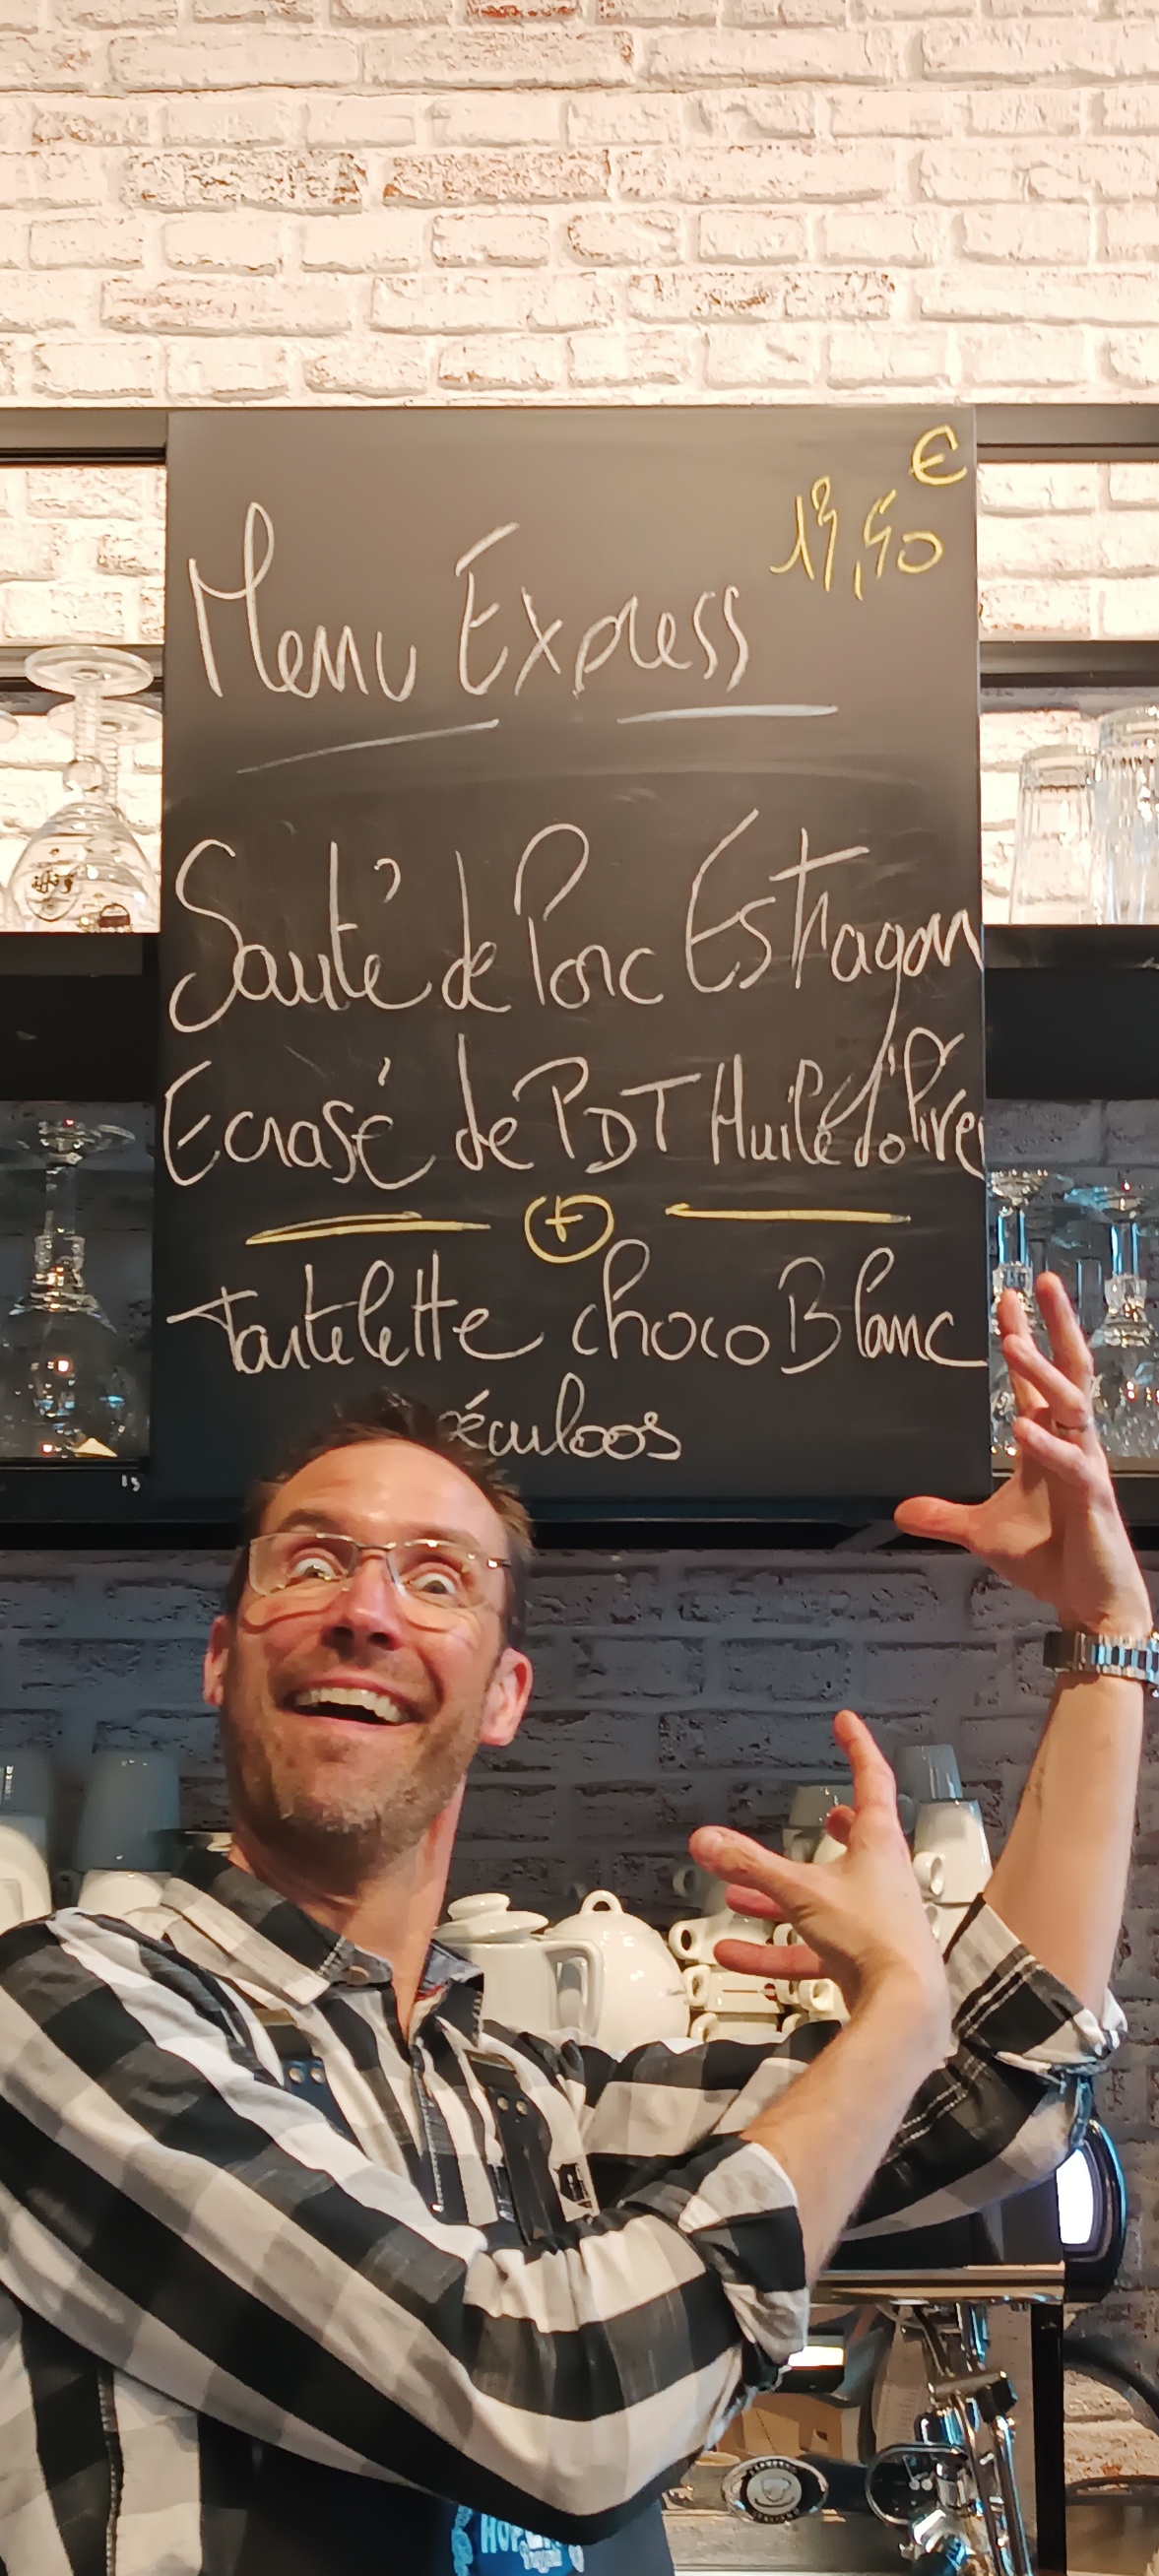 €
Menu Express
Sauté de Porc Estragon
Ecrasé de PDT Huile d'olive
+
Tartelette choco Blanc
éculoos